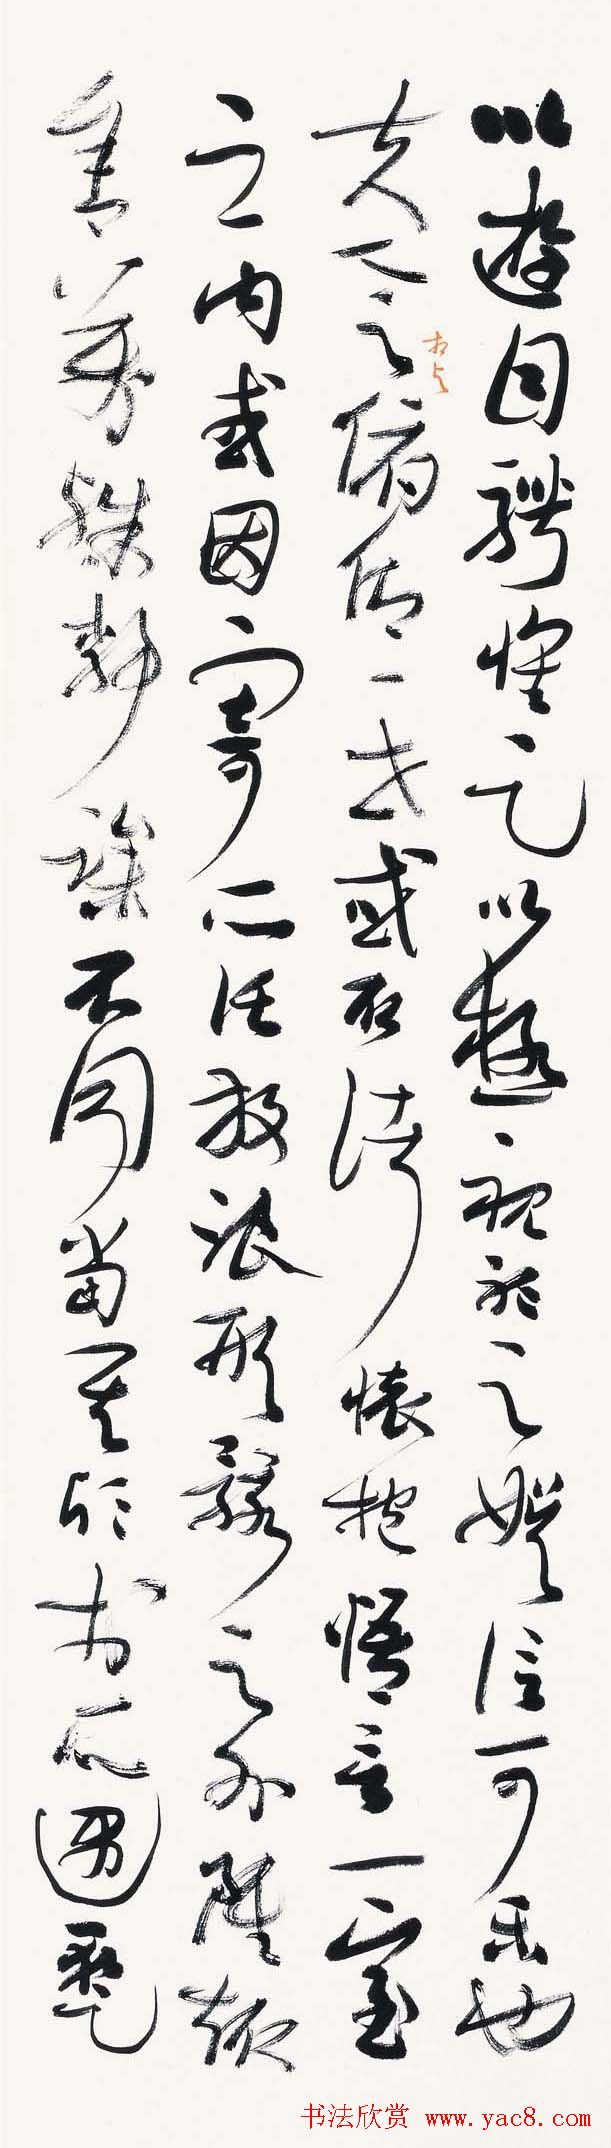 以遊目騁懷足以極視聽之娛信可樂也
夫人之俯仰一世或取諸懷抱悟言一室
相與
之內或因寄所託放浪形骸之外雖趣
舍萬殊靜躁不同當其欣於所遇暫
书法欣赏 www.yac8.com